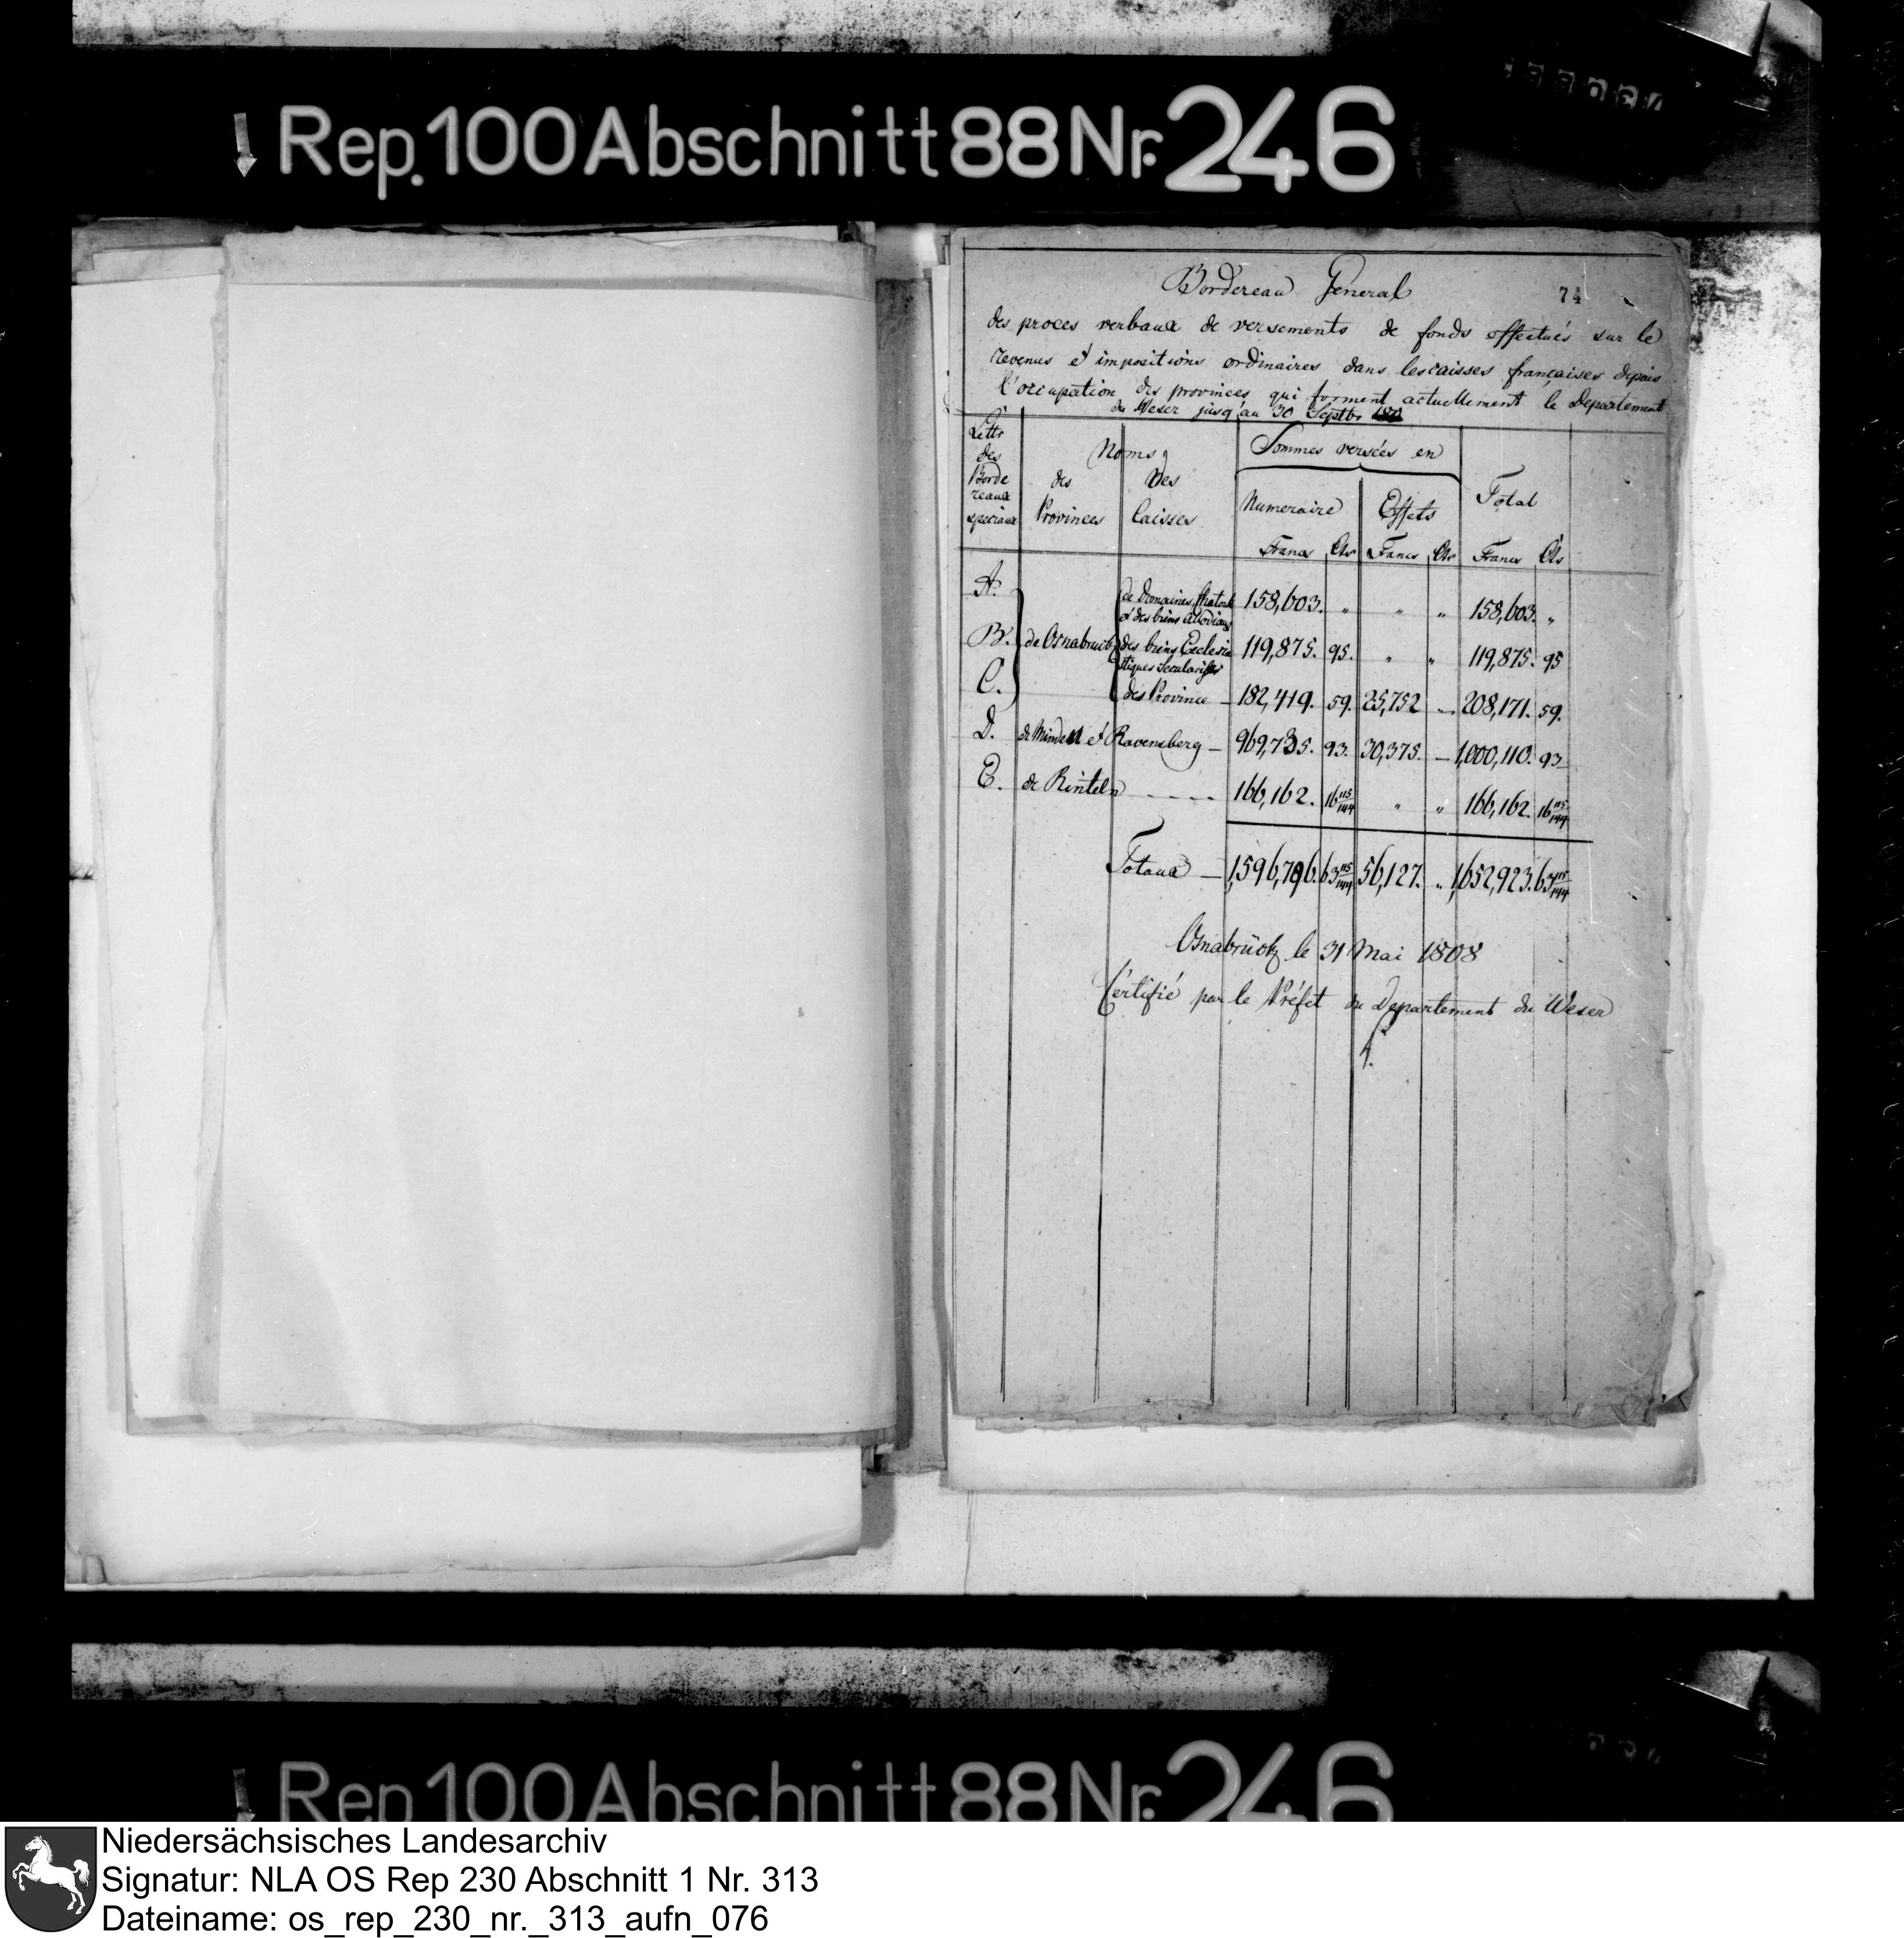 Rep. 100 Abschnitt 88 Nr. 246
Bordereau General
74
des proces verbaux de versements de fonds effectués sur le
revenus et impositions ordinaires dans les caisses françaises depuis
l'occupation des provinces qui forment actuellement le Departement
du Weser jusq'au 30 Septbr
Littr
des
Borde
reaux
speciaux
Noms
des
Provinces
Des
Caisses
Sommes versées en
Numeraire
Effets
Total
Francs Cts Francs Cts Francs Cts
A. de Domaines
et des biens allodiaux 158,603. " " " 158,603. "
B. de Osnabruck des biens Ecclesia
stiques 119,875. 95. " " 119,875. 95
C. des Province 182,419. 59. 25,752 — 208,171. 59.
D. de Minden et Ravensberg — 969,735. 93. 30,375. — 1,000,110. 93
E. de Rinteln 166,162. 16 115/144 " " 166,162. 16 115/144
Totaux — 1,596,796. 63 115/144 56,127. " 1,652,923. 63 115/144
Osnabrück le 31 Mai 1808
Certifié par le Préfet du Departement du Weser
Rep. 100 Abschnitt 88 Nr. 246
Niedersächsisches Landesarchiv
Signatur: NLA OS Rep 230 Abschnitt 1 Nr. 313
Dateiname: os_rep_230_nr._313_aufn_076